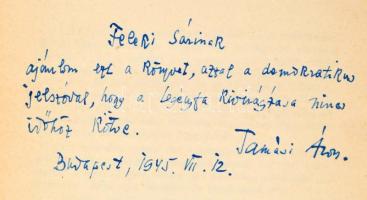 Feleki Sárinak
ajánlom ezt a könyvet, azzal a demokratikus
jelszóval, hogy a legényfa kivirágzása nincs
időhöz kötve.
Tamási Áron.
Budapest, 1945. VII. 12.